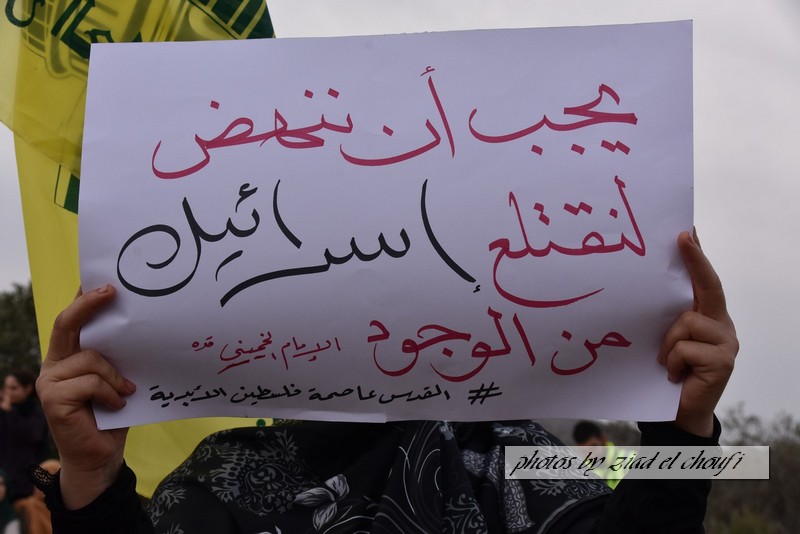 يجب أن ننهض
لنقتلع إسرائيل
من الوجود
الإمام الخميني قده
#القدس عاصمة فلسطين الأبدية
photos by ziad el choufi